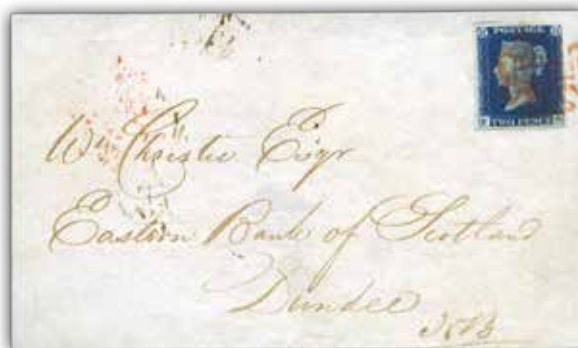 POSTAGE
TWO PENCE
Wm Christie Esqr
Eastern Bank of Scotland
Dundee